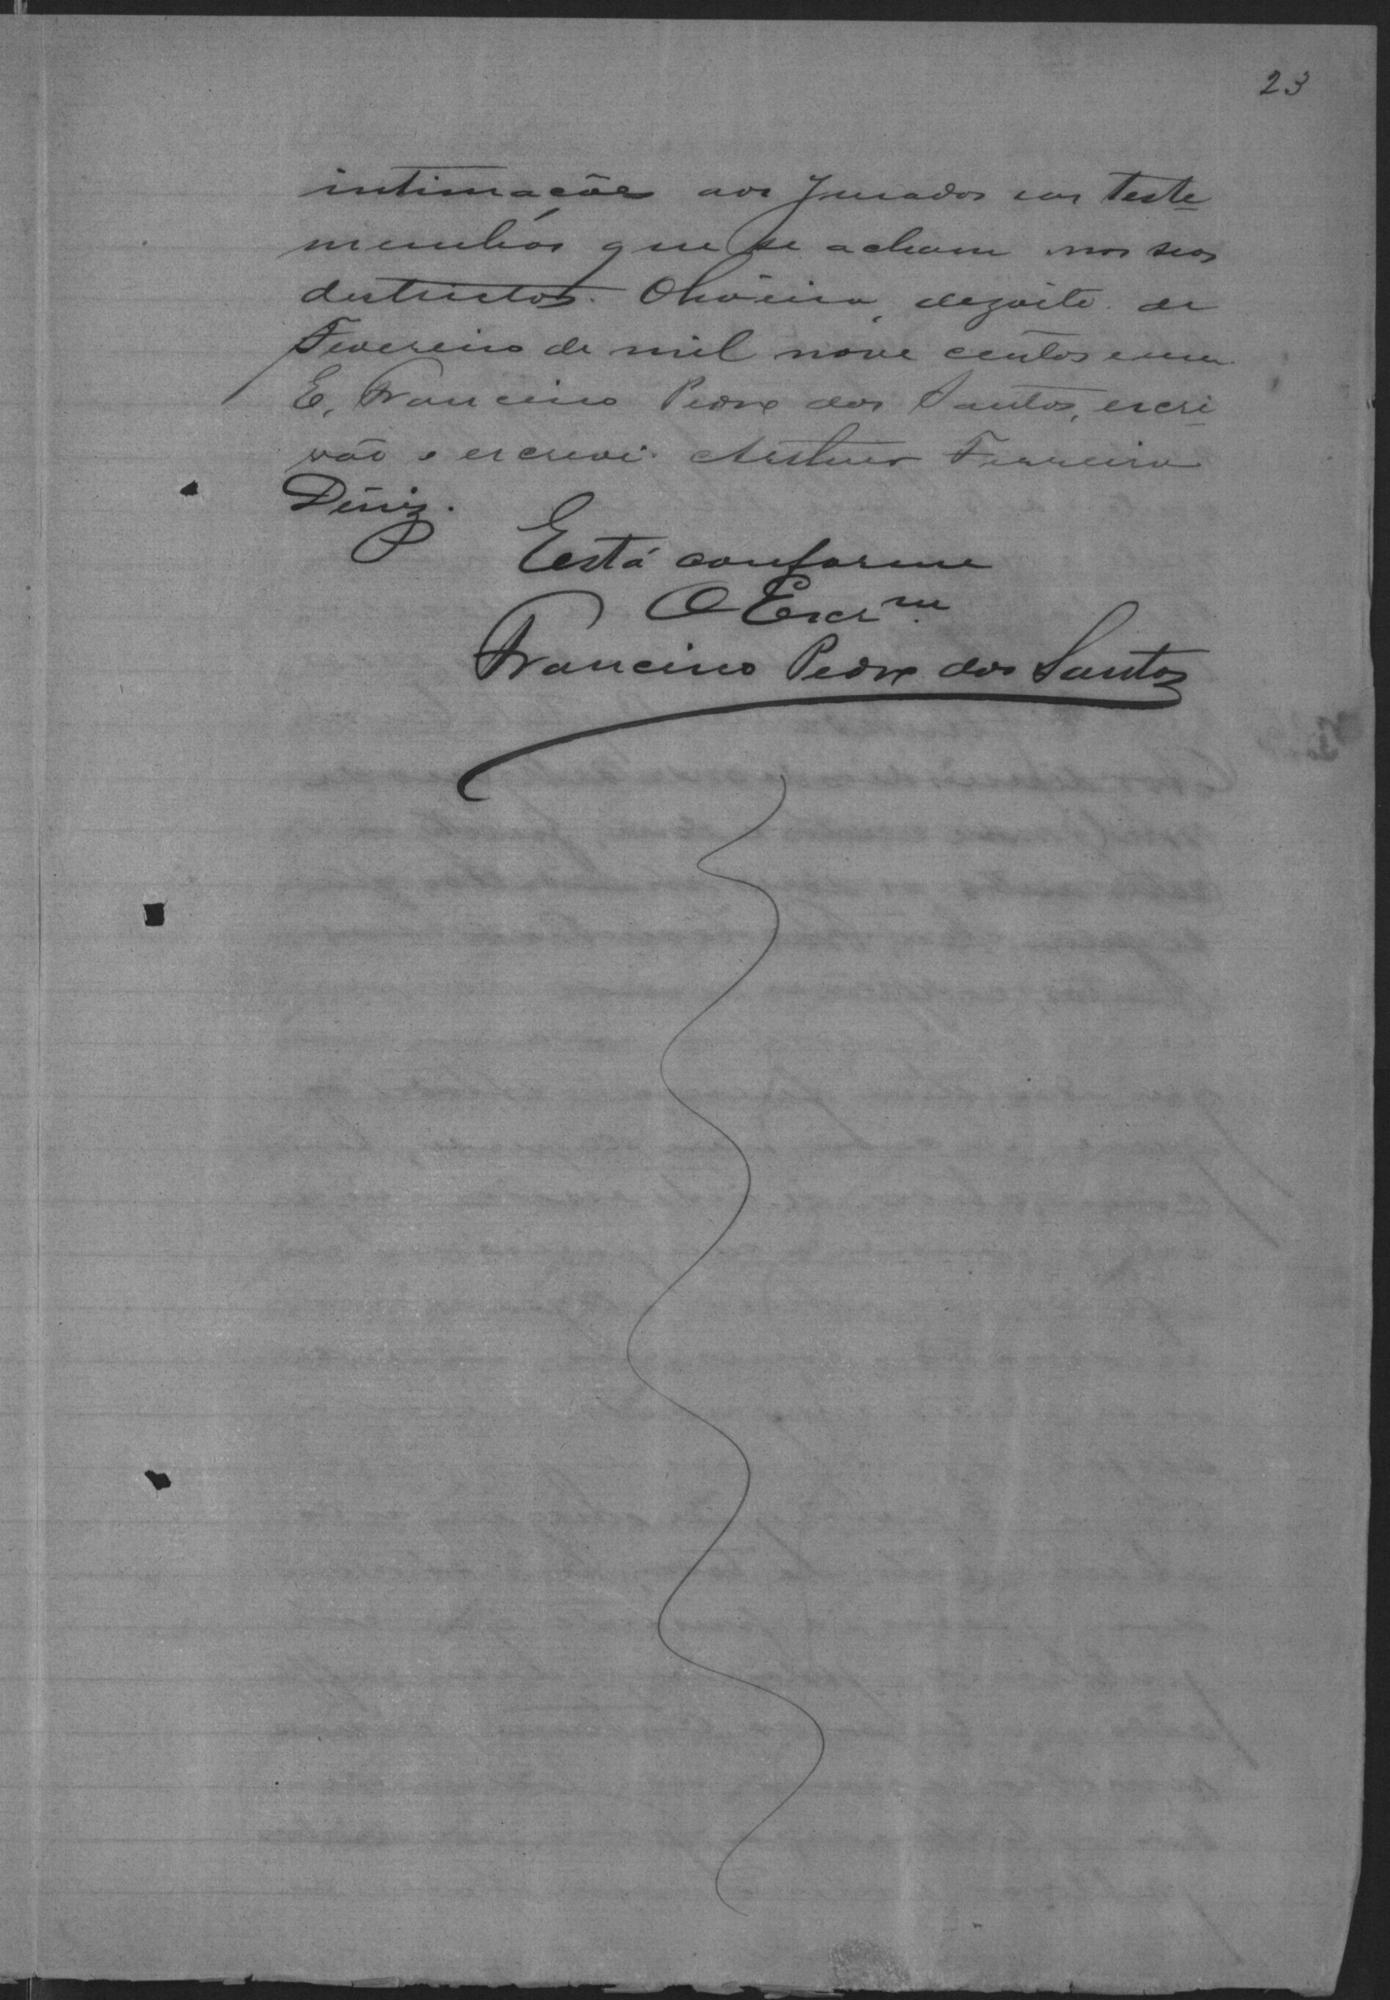 23
intimação aos Jurados ou teste
munhas que se acham nos seos
districtos. Oliveira, dezoito de
Fevereiro de mil nove centos e um
E, Francino Pedro dos Santos, escri
vão o escrevi. Arthur Ferreira
Diniz.
Está conforme
O Escr.m
Francino Pedro dos Santos